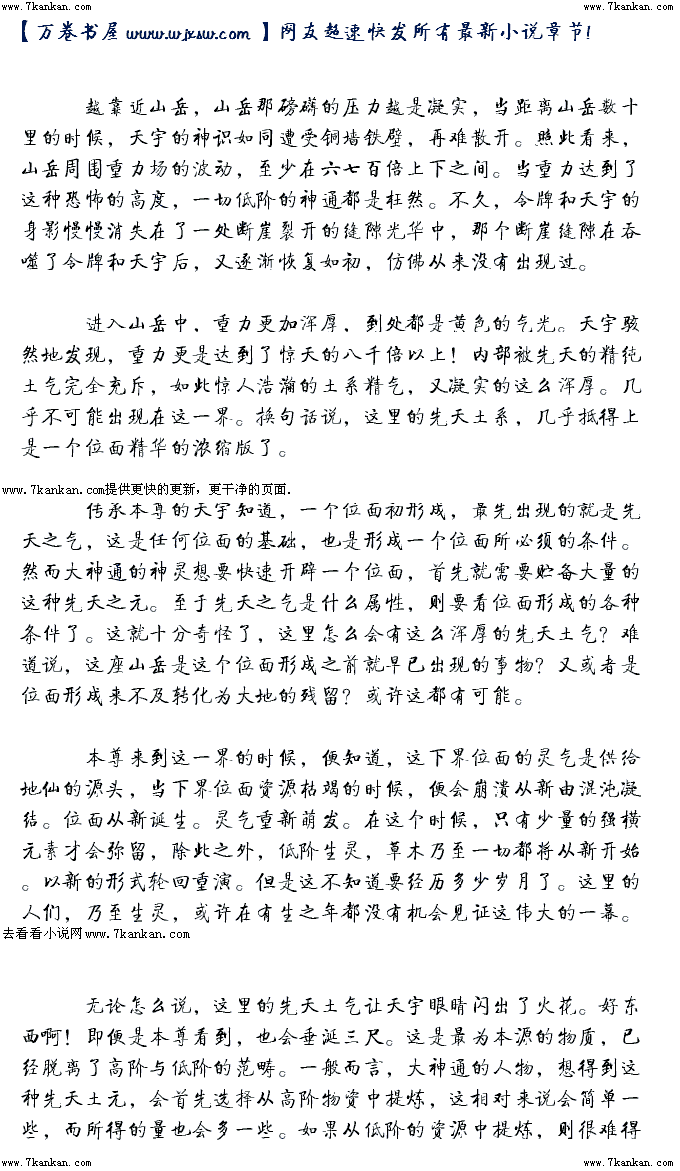 www.7kankan.com www.7kankan.com
【万卷书屋 www.wjxsw.com 】网友超速快发所有最新小说章节!
越靠近山岳，山岳那磅礴的压力越是凝实，当距离山岳数十
里的时候，天宇的神识如同遭受铜墙铁壁，再难散开。照此看来，
山岳周围重力场的波动，至少在六七百倍上下之间。当重力达到了
这种恐怖的高度，一切低阶的神通都是枉然。不久，令牌和天宇的
身影慢慢消失在了一处断崖裂开的缝隙光华中，那个断崖缝隙在吞
噬了令牌和天宇后，又逐渐恢复如初，仿佛从来没有出现过。
进入山岳中，重力更加浑厚，到处都是黄色的气光。天宇骇
然地发现，重力更是达到了惊天的八千倍以上！内部被先天的精纯
土气完全充斥，如此惊人浩瀚的土系精气，又凝实的这么浑厚。几
乎不可能出现在这一界。换句话说，这里的先天土系，几乎抵得上
是一个位面精华的浓缩版了。
www.7kankan.com提供更快的更新，更干净的页面.
传承本尊的天宇知道，一个位面初形成，最先出现的就是先
天之气，这是任何位面的基础，也是形成一个位面所必须的条件。
然而大神通的神灵想要快速开辟一个位面，首先就需要贮备大量的
这种先天之元。至于先天之气是什么属性，则要看位面形成的各种
条件了。这就十分奇怪了，这里怎么会有这么浑厚的先天土气？难
道说，这座山岳是这个位面形成之前就早已出现的事物？又或者是
位面形成来不及转化为大地的残留？或许这都有可能。
本尊来到这一界的时候，便知道，这下界位面的灵气是供给
地仙的源头，当下界位面资源枯竭的时候，便会崩溃从新由混沌凝
结。位面从新诞生。灵气重新萌发。在这个时候，只有少量的强横
元素才会弥留，除此之外，低阶生灵，草木乃至一切都将从新开始
。以新的形式轮回重演。但是这不知道要经历多少岁月了。这里的
人们，乃至生灵，或许在有生之年都没有机会见证这伟大的一幕。
去看看小说网www.7kankan.com
无论怎么说，这里的先天土气让天宇眼睛闪出了火花。好东
西啊！即便是本尊看到，也会垂涎三尺。这是最为本源的物质，已
经脱离了高阶与低阶的范畴。一般而言，大神通的人物，想得到这
种先天土元，会首先选择从高阶物资中提炼，这相对来说会简单一
些，而所得的量也会多一些。如果从低阶的资源中提炼，则很难得
www.7kankan.com www.7kankan.com